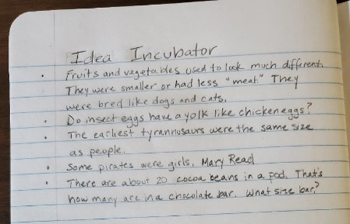 Idea Incubator
• Fruits and vegetables used to look much different.
They were smaller or had less "meat" They
were bred like dogs and cats.
• Do insect eggs have a yolk like chicken eggs?
• The earliest tyrannosaurs were the same size
as people.
• Some pirates were girls. Mary Read
• There are about 20 cocoa beans in a pod. Thats
how many are in a chocolate bar. What size bar?